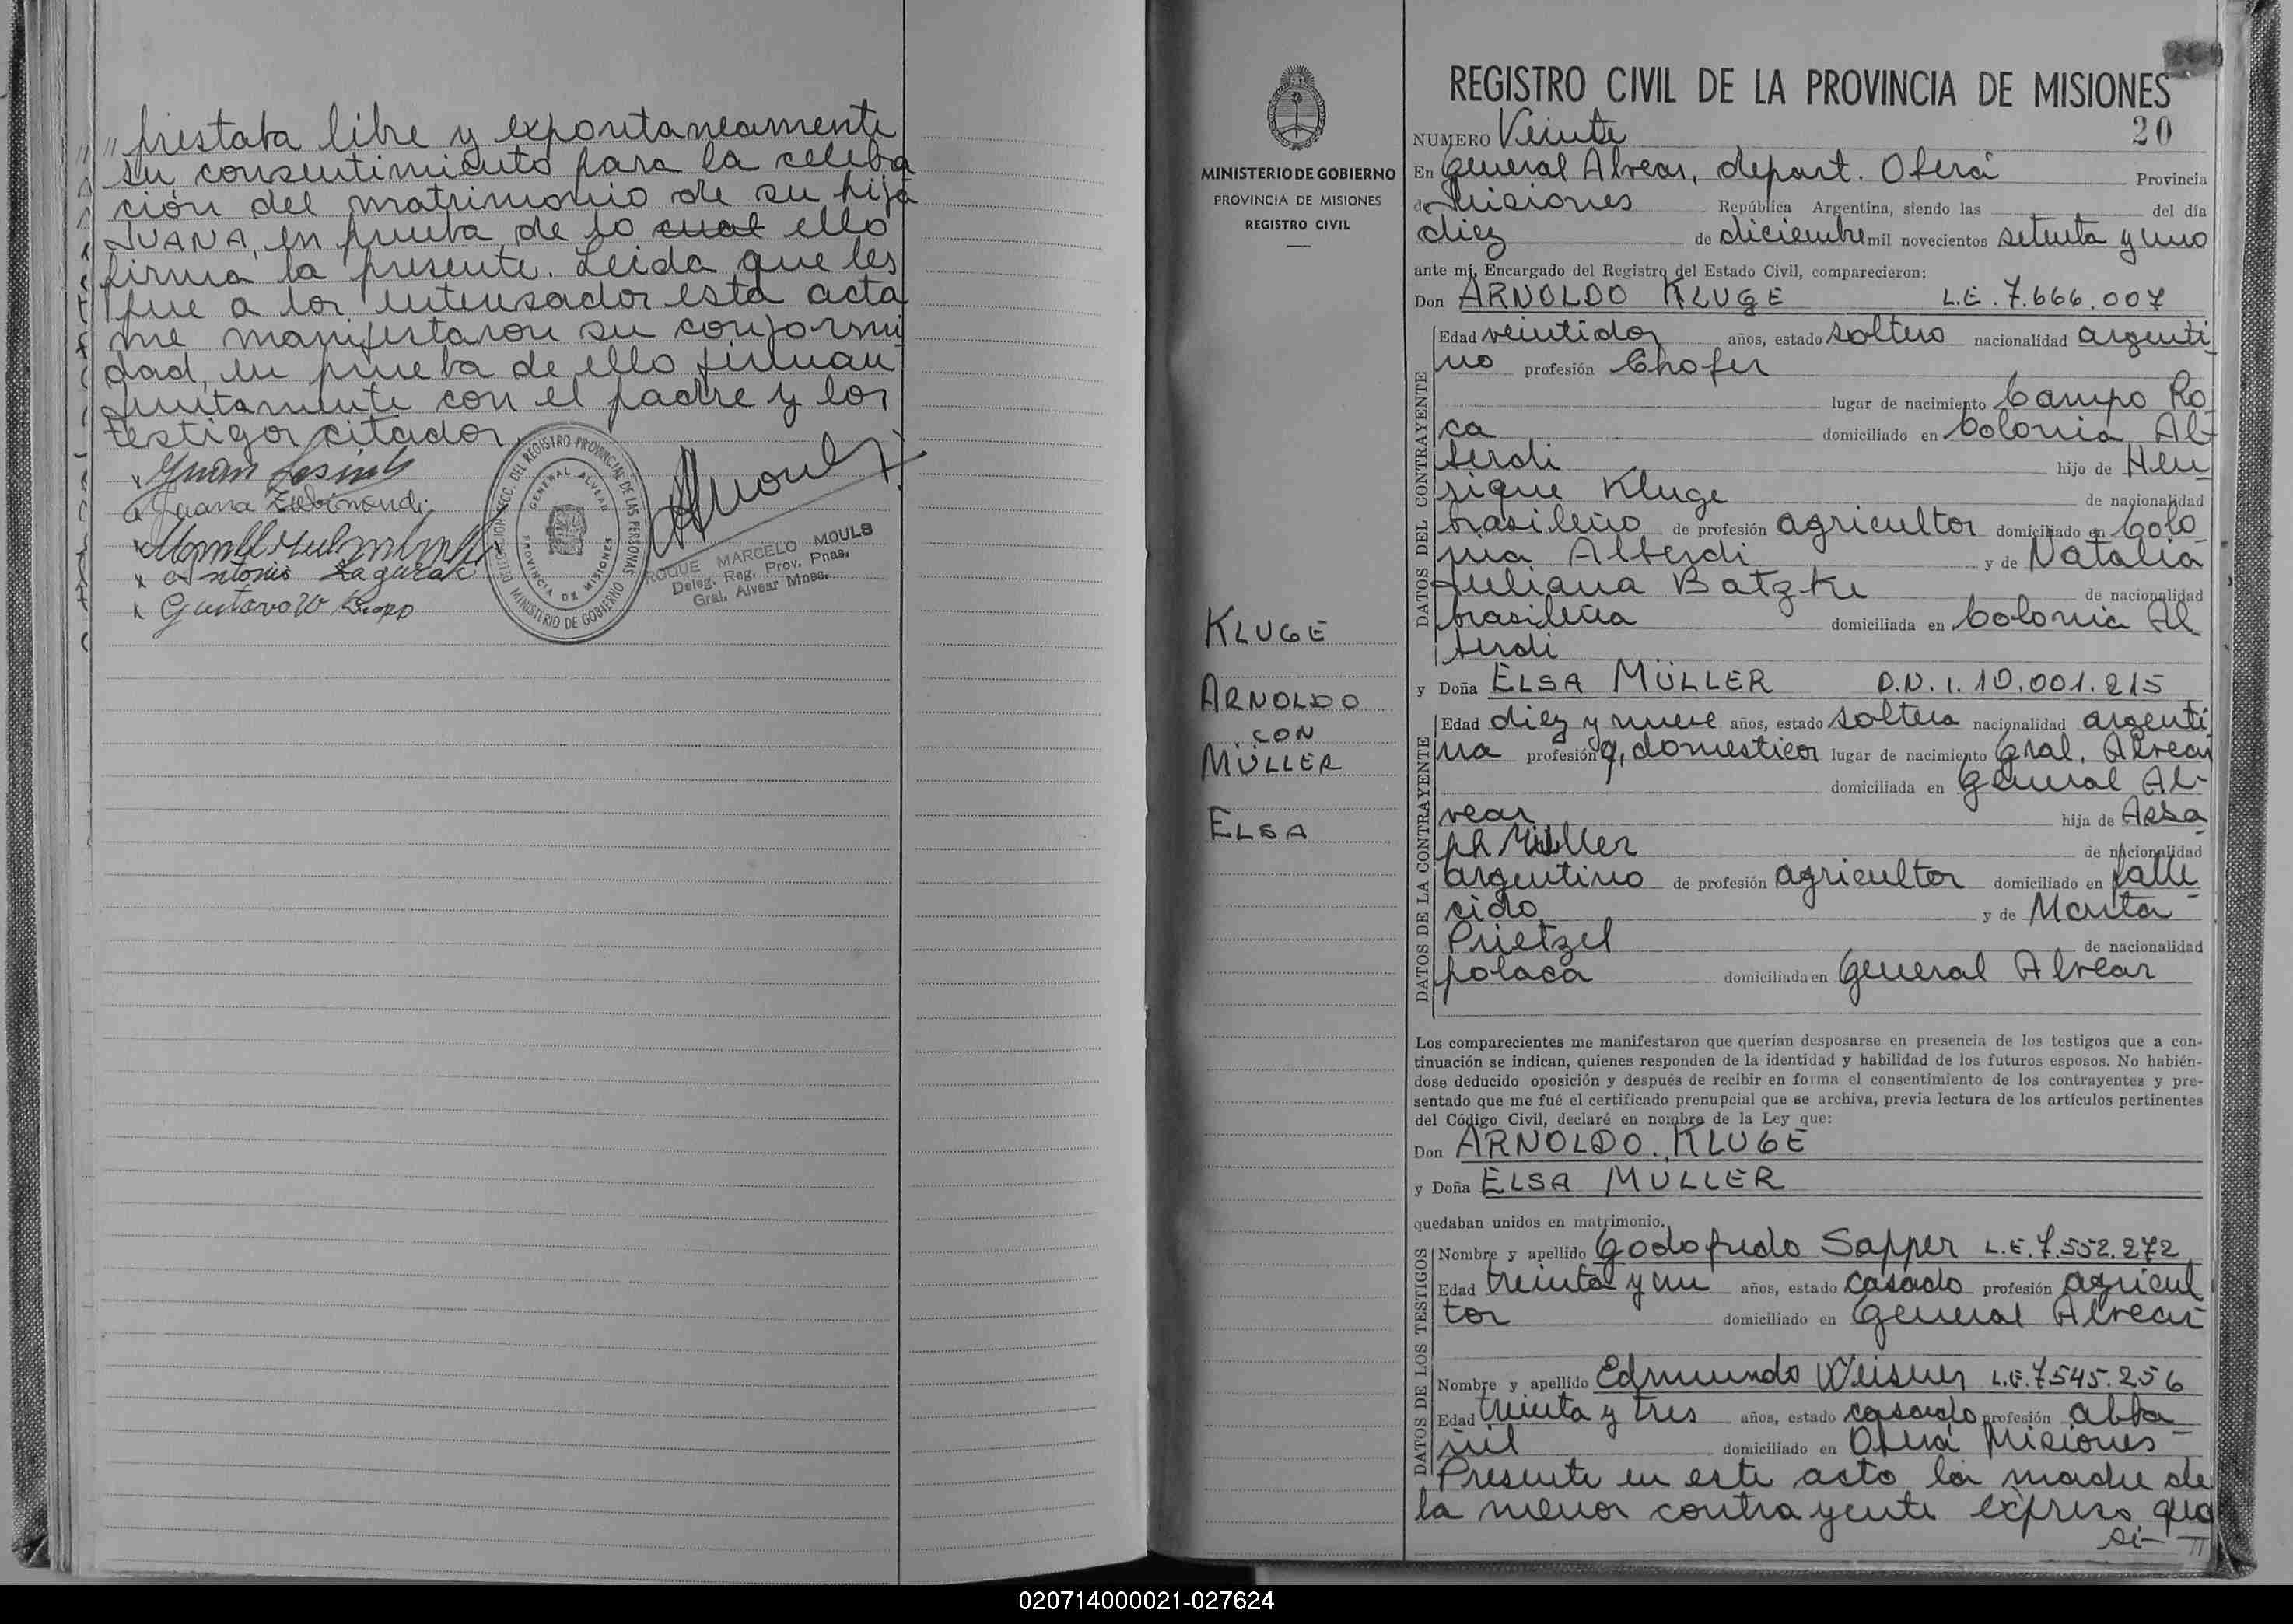 "prestaba libre y expontaneamente
su consentimiento para la celebra
ción del matrimonio de su hija
JUANA, en prueba de lo cual ello
firma la presente. Leida que les
fue a los interesados esta acta
me manifestaron su conformi
dad, en prueba de ello firman
juntamente con el padre y los
testigos citados
Juan
Juana
Antonio
Gustavo
DELEGACION SECC. DEL REGISTRO PROVINCIAL DE LAS PERSONAS
MINISTERIO DE GOBIERNO
GENERAL ALVEAR
PROVINCIA DE MISIONES
ROQUE MARCELO MOULS
Deleg. Reg. Prov. Pnas.
Gral. Alvear Mnes.
MINISTERIO DE GOBIERNO
PROVINCIA DE MISIONES
REGISTRO CIVIL
KLUGE
ARNOLDO
CON
MÜLLER
ELSA
REGISTRO CIVIL DE LA PROVINCIA DE MISIONES
NUMERO Veinte 20
En General Alvear, depart. Oberá Provincia
de Misiones República Argentina, siendo las del día
diez de diciembre mil novecientos setenta y uno
ante mí, Encargado del Registro del Estado Civil, comparecieron:
Don ARNOLDO KLUGE L.E. 7.666.007
DATOS DEL CONTRAYENTE
Edad veintidos años, estado soltero nacionalidad argenti
no profesión Chofer
lugar de nacimiento Campo Ro
ca domiciliado en Colonia Al
berdi hijo de Hen
rique Kluge de nacionalidad
brasileño de profesión agricultor domiciliado en Colo
nia Alberdi y de Natalia
Juliana Batzke de nacionalidad
brasileña domiciliada en Colonia Al
berdi
y Doña ELSA MÜLLER D.N.I. 10.001.215
DATOS DE LA CONTRAYENTE
Edad diez y nueve años, estado soltera nacionalidad argenti
na profesión q. domesticos lugar de nacimiento Gral. Alvear
domiciliada en General Al-
vear hija de Assa
ph Müller de nacionalidad
argentino de profesión agricultor domiciliado en falle
cido y de Marta
Prietzel de nacionalidad
polaca domiciliada en General Alvear
Los comparecientes me manifestaron que querían desposarse en presencia de los testigos que a con-
tinuación se indican, quienes responden de la identidad y habilidad de los futuros esposos. No habién-
dose deducido oposición y después de recibir en forma el consentimiento de los contrayentes y pre-
sentado que me fué el certificado prenupcial que se archiva, previa lectura de los artículos pertinentes
del Código Civil, declaré en nombre de la Ley que:
Don ARNOLDO KLUGE
y Doña ELSA MULLER
quedaban unidos en matrimonio.
DATOS DE LOS TESTIGOS
Nombre y apellido Godofredo Sapper L.E. 7.552.272
Edad treinta y un años, estado casado profesión agricul
tor domiciliado en General Alvear
Nombre y apellido Edmundo Weisner L.E. 7545.256
Edad treinta y tres años, estado casado profesión alba
ñil domiciliado en Oberá Misiones
Presente en este acto la madre de
la menor contrayente expreso que
si- "
020714000021-027624